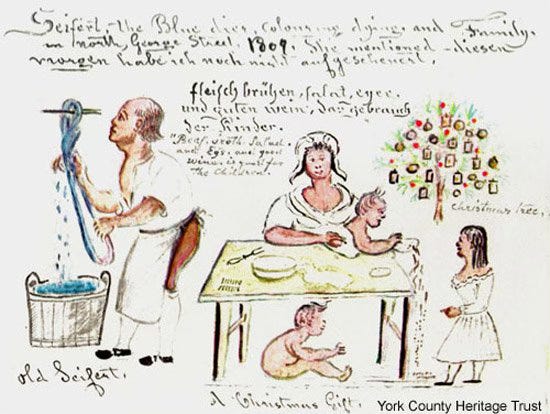 Seifert, the Blue dier, Colouring dying, and Family,
in north George Street, 1809. She mentioned - diesen
morgen habe ich noch nicht aufgescheuert.
fleisch brühen, salat, eyer.
und guten wein, dar gebrauch
der Kinder.
"Beef, broth Salad.
and Egs. and good
Wine, is good for
the Children.
Christmas tree.
old Seifert.
A Christmas Gift.
York County Heritage Trust